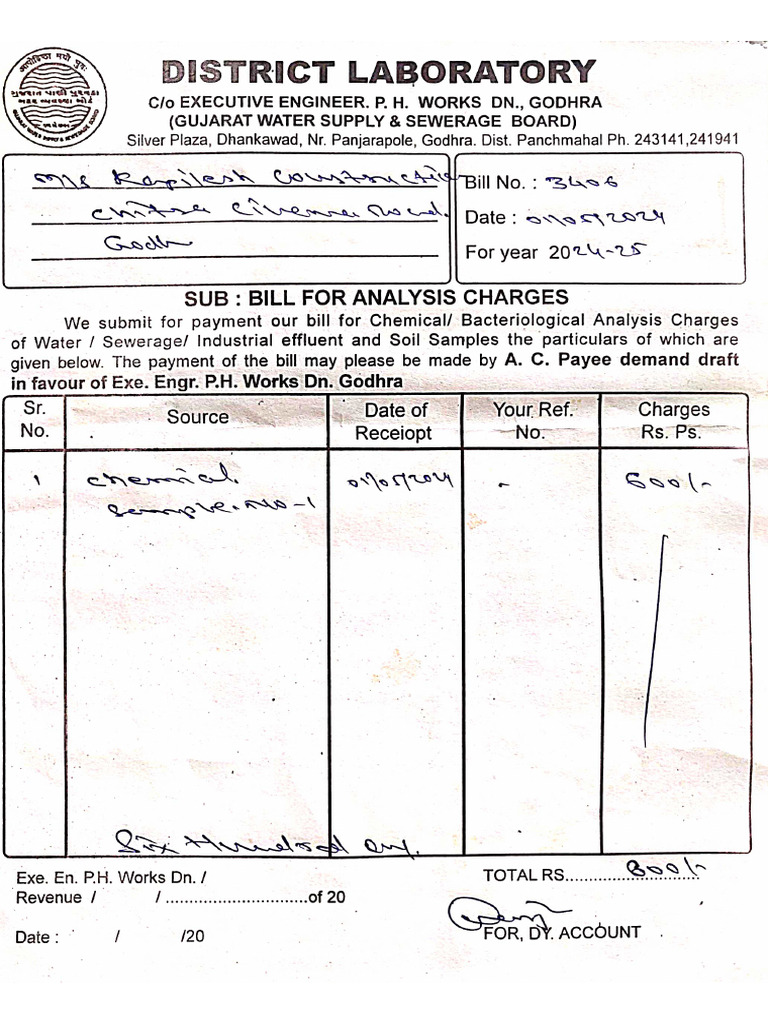 આપોહિષ્ઠા મયો ભુવઃ
ગુજરાત પાણી પુરવઠા
GUJARAT WATER SUPPLY & SEWERAGE BOARD
DISTRICT LABORATORY
C/o EXECUTIVE ENGINEER. P. H. WORKS DN., GODHRA
(GUJARAT WATER SUPPLY & SEWERAGE BOARD)
Silver Plaza, Dhankawad, Nr. Panjarapole, Godhra. Dist. Panchmahal Ph. 243141,241941
M/s Kapilesh Construction
Chitra Cinema Road.
Godh
Bill No. : 3406
Date : 01/05/2024
For year 2024-25
SUB : BILL FOR ANALYSIS CHARGES
We submit for payment our bill for Chemical/ Bacteriological Analysis Charges
of Water / Sewerage/ Industrial effluent and Soil Samples the particulars of which are
given below. The payment of the bill may please be made by A. C. Payee demand draft
in favour of Exe. Engr. P.H. Works Dn. Godhra
Sr. No. Source Date of Receiopt Your Ref. No. Charges Rs. Ps.
1 Chemical. 01/05/2024 - 600/-
Sample. No-1
Six Hundred
Exe. En. P.H. Works Dn. / TOTAL RS.............................600/-
Revenue / / .............................of 20
Date : / /20 FOR, DY. ACCOUNT